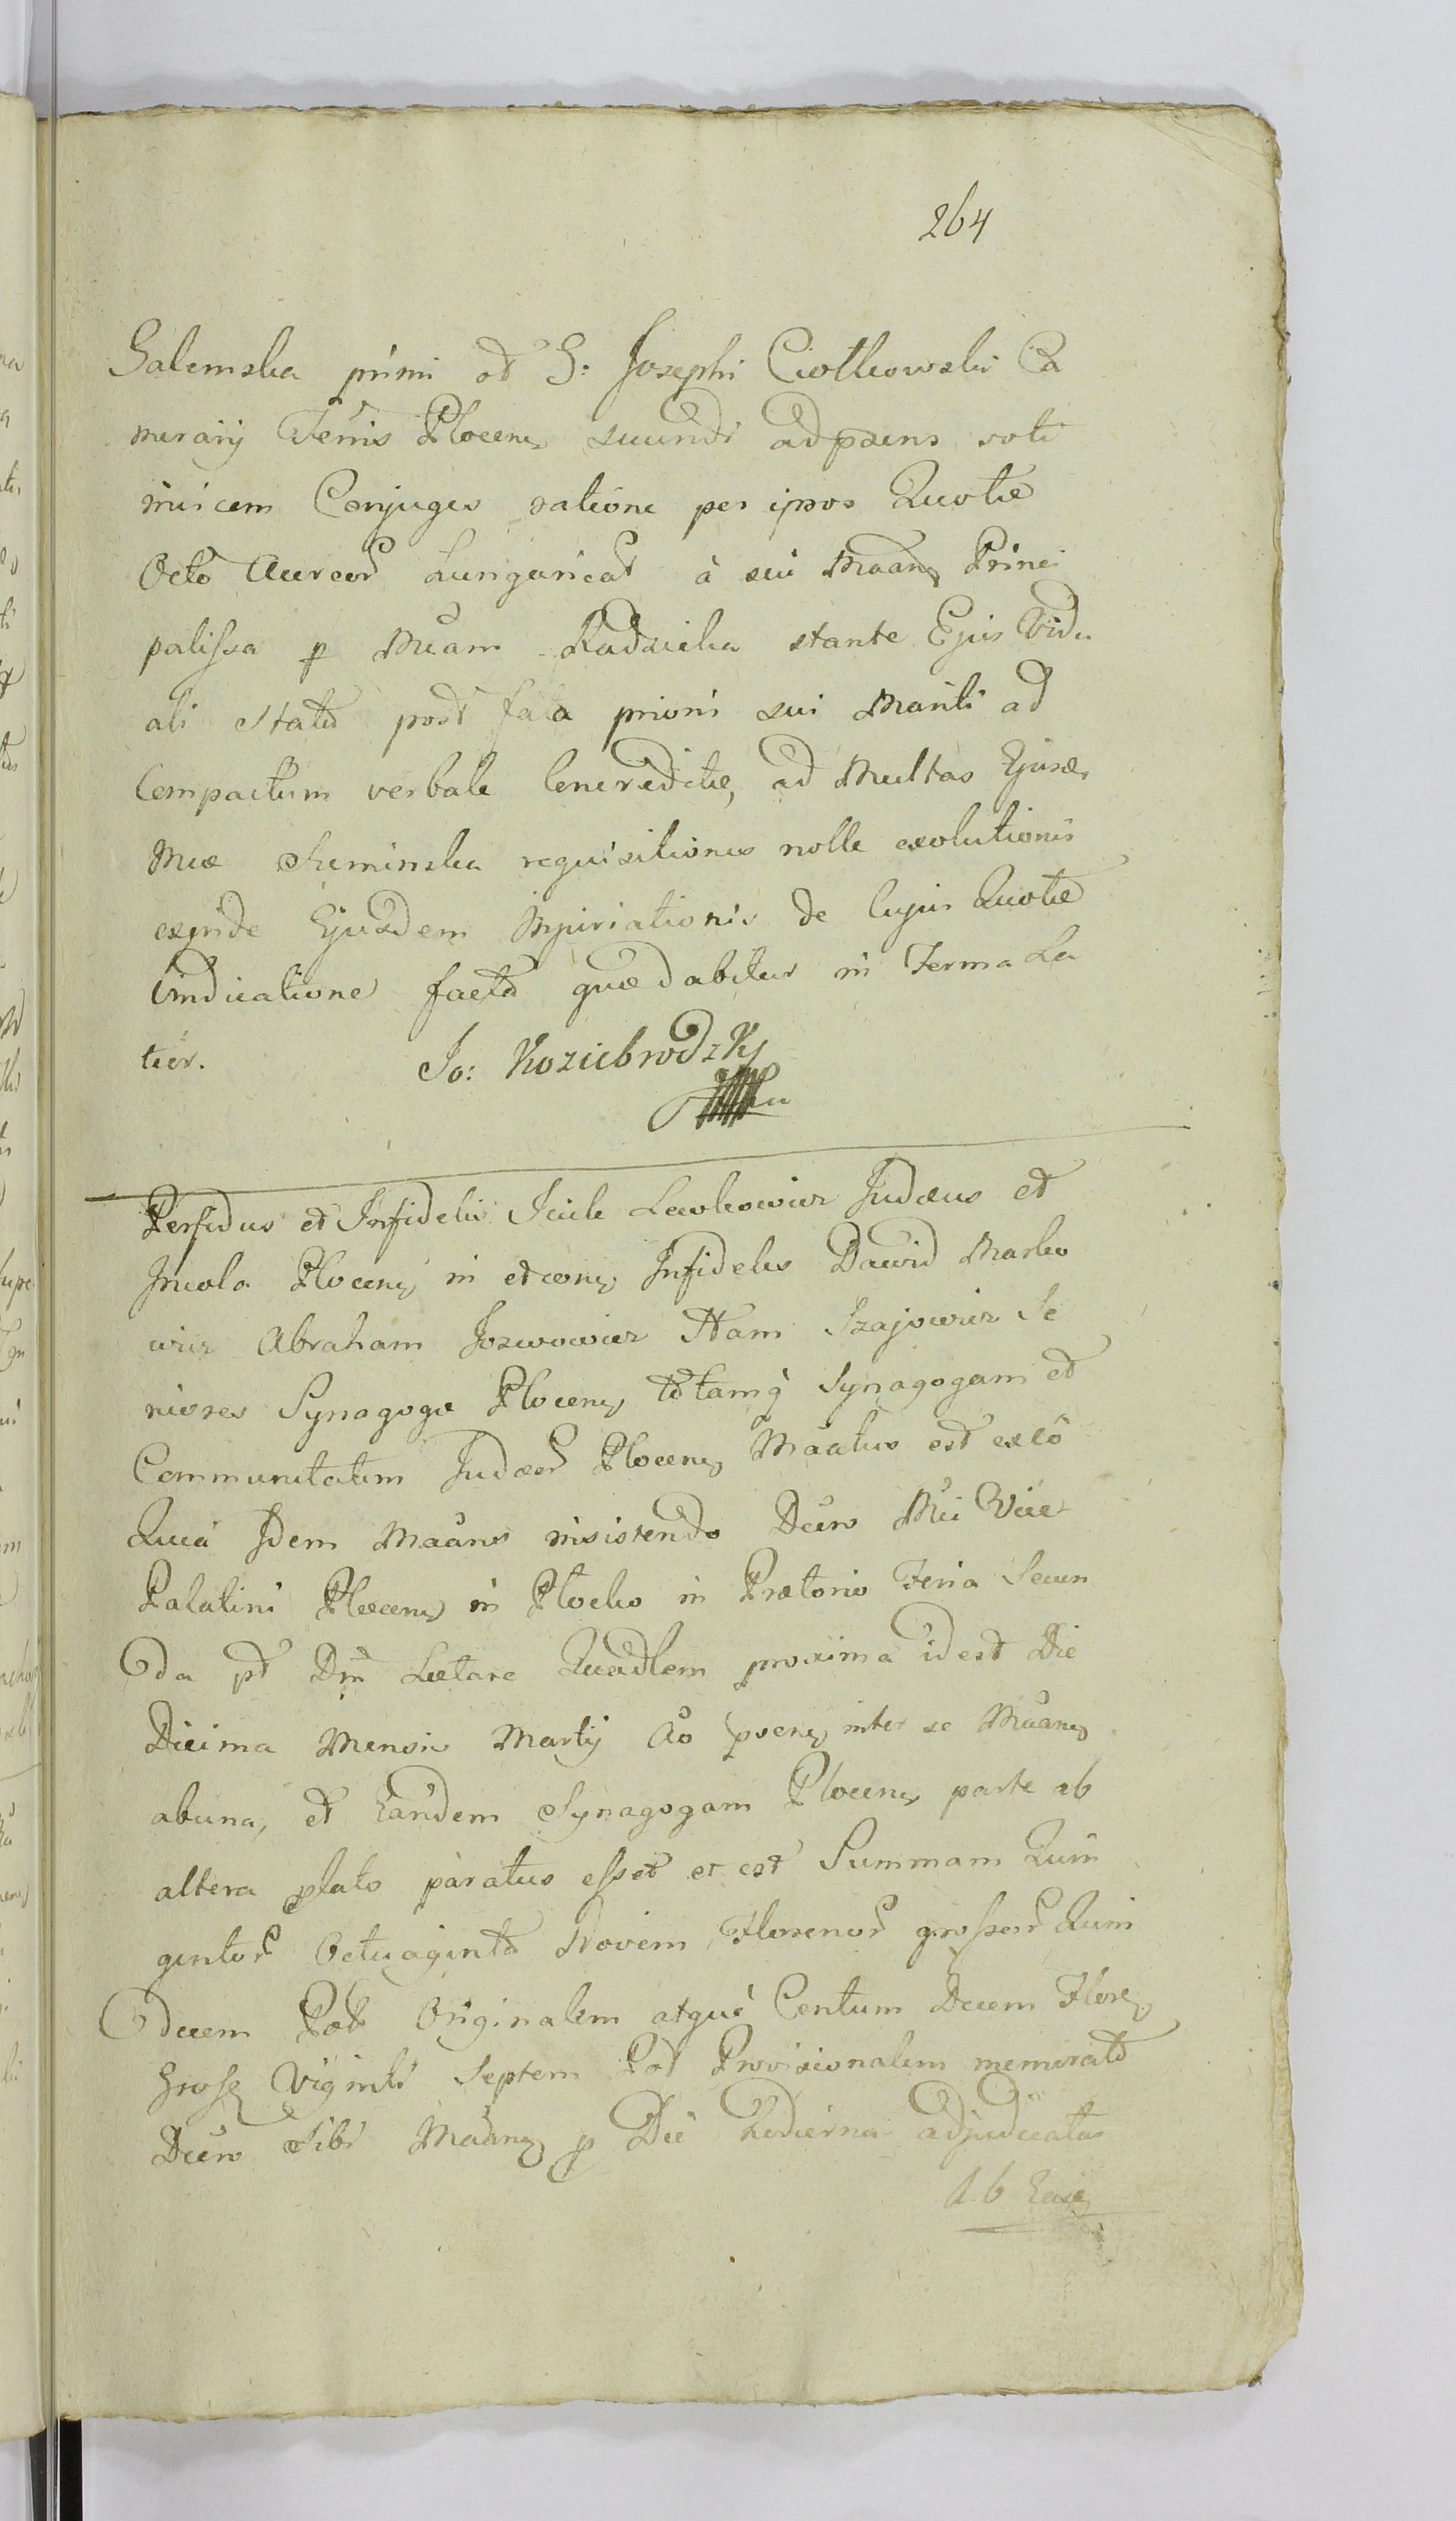 264
Galemska primi et G: Josephi Ciołkowski Ca
merarij Terris Plocens secundi ad praesens voti
invicem Conjuges ratione per ipsos Quotae
Octo Aureor Hungaricar à sui Maam Princi
palissa p Mcam Radzicka stante Ejus Vidu
ali Statu post fata prioris sui Mariti ad
Compactum verbale Concreditae, ad Multas Ejusd
Mcae requisitiones nolle exolutionis
exinde Ejusdem Injuriationis de Cujus Quotae
Vindicatione facta quae dabitur in Termo La
tior. Jo: Koziebrodzky
Perfidus et Infidelis Icik Lewkowicz Judaeus et
Incola Plocens in et cons Infideles Dawid Marko
wicz Abraham Jozwowicz Ham Szajowicz Se
niores Synagogae Plocens totamq Synagogam et
Communitatem Judaeor Plocens Maatus est ex eo
Quia Idem Maans insistendo Decro Mci Vice
Palatini Plocens in Plocko in Praetorio Feria Secun
da pt Dm Laetare Quadlem proxima idest Die
Decima Mensis Martij Ao praens inter se Maans
ab una, et Eandem Synagogam Plocens parte ab
altera plato paratus esset et est Summam Quin
gentor Octuaginta Novem Florenor grossor Quin
decem Pol Originalem atque Centum Decem Flore
Gross Viginti Septem Pol Provisionalem memorato
Decro Sibi Maans p Die Hodierna adjudicatas
Ab Eausd